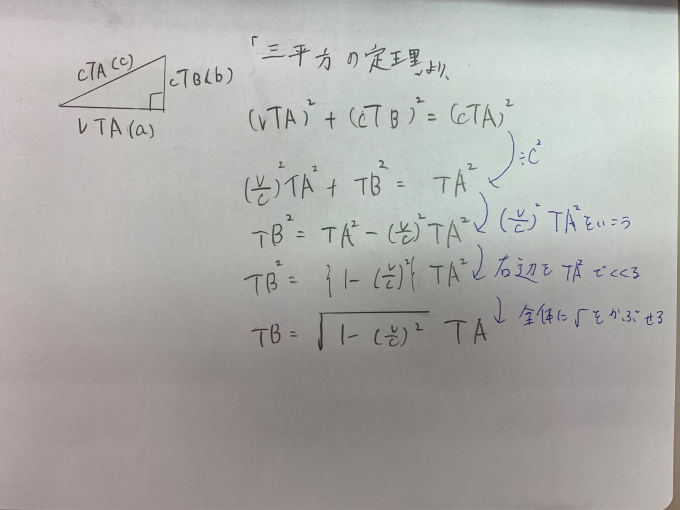 cTA(c)
cTB(b)
vTA(a)
「三平方の定理」より、
(vTA)² + (cTB)² = (cTA)²
÷c²
(v/c)²TA² + TB² = TA²
(v/c)² TA²をいこう
TB² = TA² - (v/c)² TA²
右辺をTA²でくくる
TB² = {1 - (v/c)²} TA²
全体に√をかぶせる
TB = √1 - (v/c)² TA